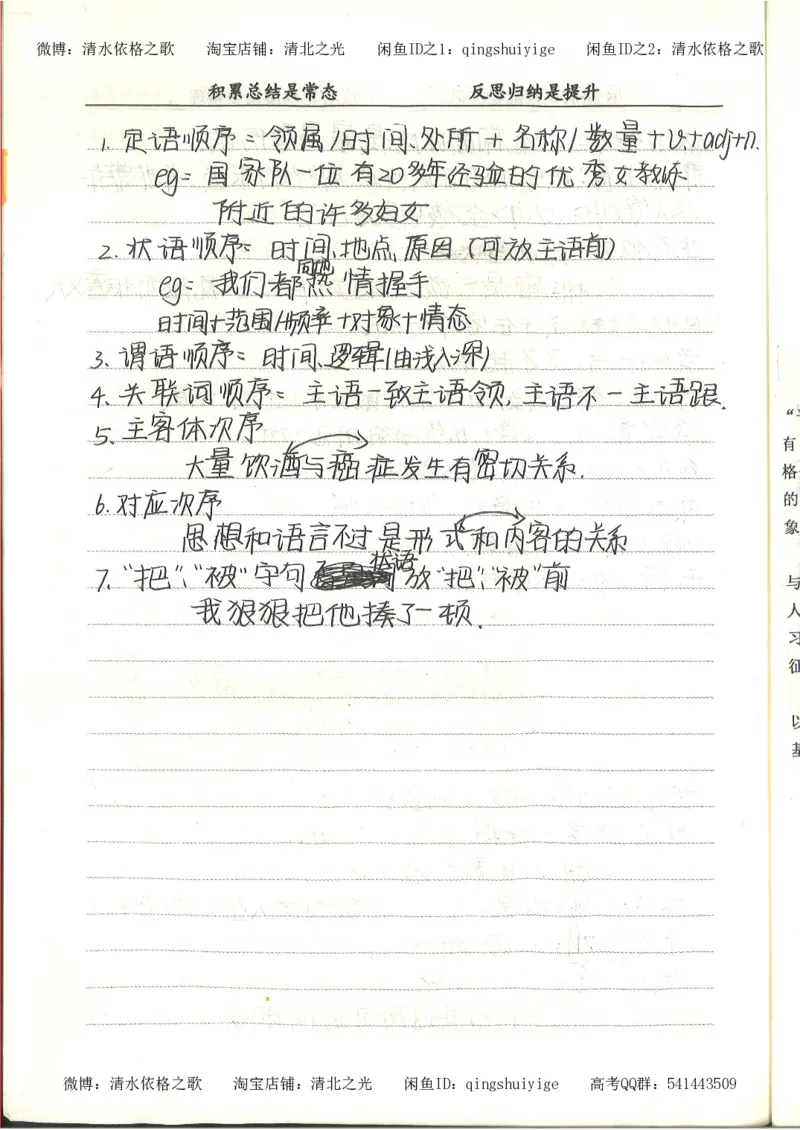 微博：清水依格之歌 淘宝店铺：清北之光 闲鱼ID之1：qingshuiyige 闲鱼ID之2：清水依格之歌
积累总结是常态 反思归纳是提升
1. 定语顺序=领属/时间、处所+名称/数量+v.+adj+n.
eg=国家队一位有20多年经验的优秀女教练.
附近的许多妇女
2. 状语顺序=时间、地点、原因（可放主语前）
eg=我们都同他热情握手
时间+范围/频率+对象+情态
3. 谓语顺序=时间、逻辑（由浅入深）
4. 关联词顺序=主语一致主语领，主语不一主语跟.
5. 主客体次序
大量饮酒与癌症发生有密切关系.
6. 对应次序
思想和语言不过是形式和内容的关系
7. “把”、“被”字句状语放“把”、“被”前
我狠狠把他揍了一顿.
“
有
格
的
象
与
人
习
征
以
基
微博：清水依格之歌 淘宝店铺：清北之光 闲鱼ID：qingshuiyige 高考QQ群：541443509